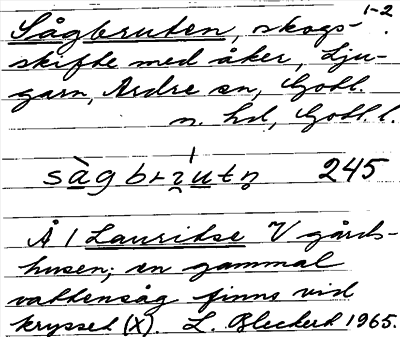 1-2
Sågbruten, skogs-
skifte med åker, Lju-
garn, Ardre sn, Gotl.
n. hd, Gotl. l.
sàgbrutn 245
Å / Lauritse V gårds-
husen; en gammal
vattensåg finns vid
krysset (X). L. Bleckert 1965.